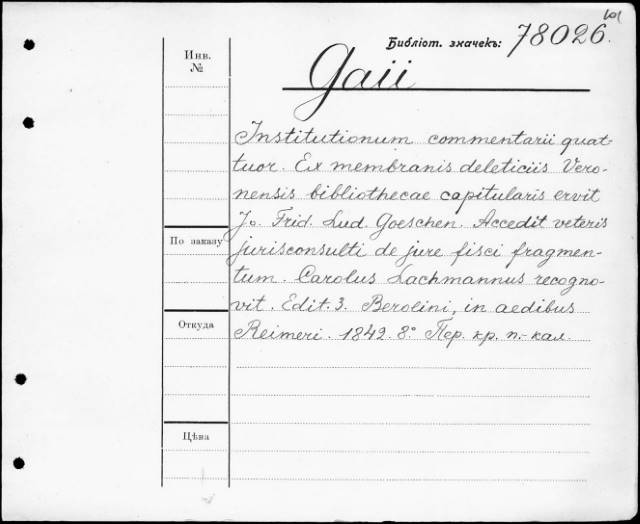 101
Библіот. значекъ: 78026.
Инв.
№
Gaii
Institutionum commentarii quat-
tuor. Ex membranis deleticiis Vero-
nensis bibliothecae capitularis eruit
Jo. Frid. Lud. Goeschen. Accedit veteris
По заказу
jurisconsulti de jure fisci fragmen-
tum. Carolus Lachmannus recogno-
vit. Edit. 3. Berolini, in aedibus
Откуда
Reimeri. 1842. 8.° Пер. кр. п.-кал.
Цѣна